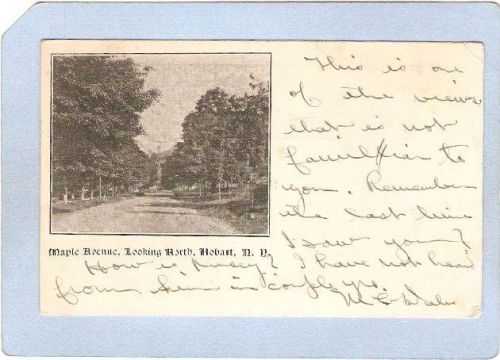 This is one
of the views
that is not
familiar to
you. Remember
the last time
I saw you?
Maple Avenue, Looking North, Hobart, N. Y.
How is Pussy? I have not heard
from him in couple yrs.